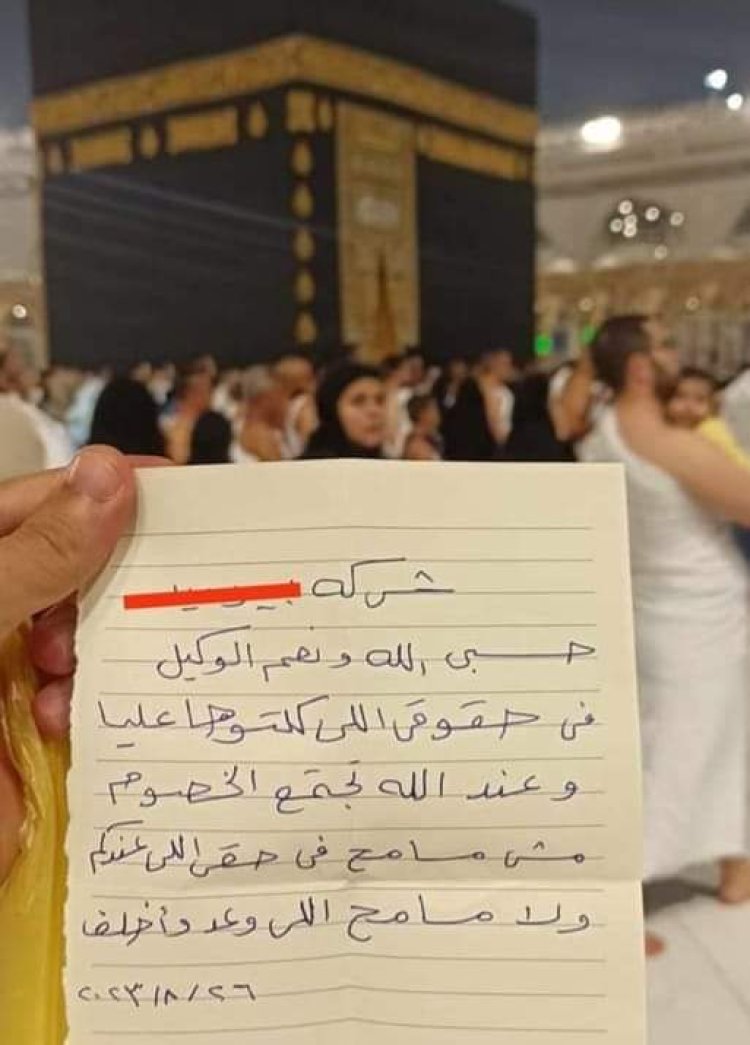 شركة
حسبى الله ونعم الوكيل
فى حقوقى اللى كلتوها عليا
وعند الله تجتمع الخصوم
مش مسامح فى حقى اللى عندكم
ولا مسامح اللى وعد وأخلف
٢٠٢٣/٨/٢٦